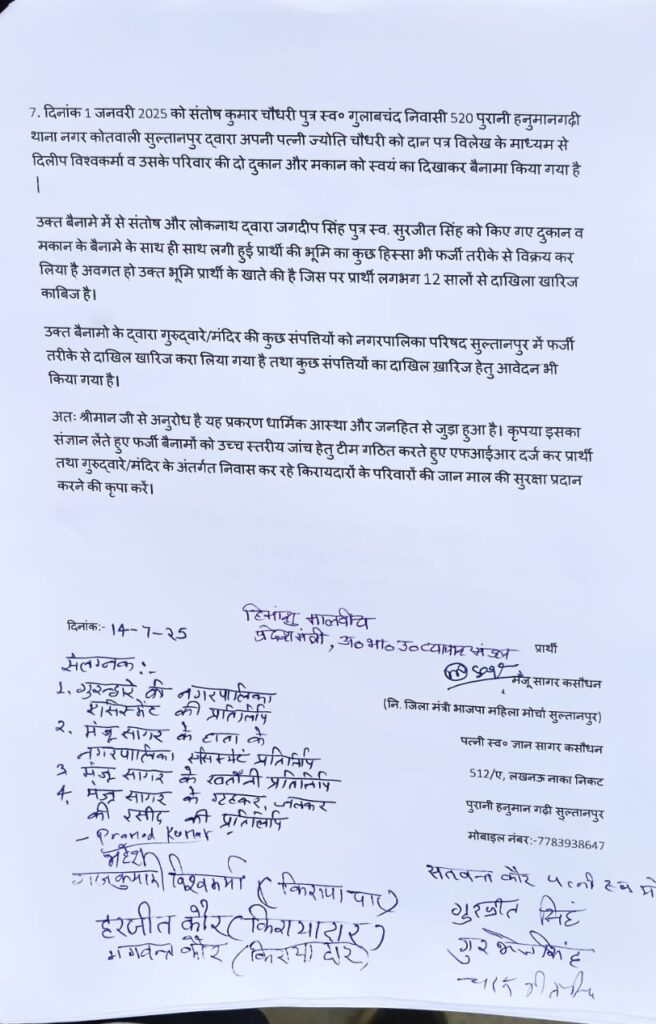 7. दिनांक 1 जनवरी 2025 को संतोष कुमार चौधरी पुत्र स्व० गुलाबचंद निवासी 520 पुरानी हनुमानगढ़ी
थाना नगर कोतवाली सुल्तानपुर द्वारा अपनी पत्नी ज्योति चौधरी को दान पत्र विलेख के माध्यम से
दिलीप विश्वकर्मा व उसके परिवार की दो दुकान और मकान को स्वयं का दिखाकर बैनामा किया गया है
|
उक्त बैनामे में से संतोष और लोकनाथ द्वारा जगदीप सिंह पुत्र स्व. सुरजीत सिंह को किए गए दुकान व
मकान के बैनामे के साथ ही साथ लगी हुई प्रार्थी की भूमि का कुछ हिस्सा भी फर्जी तरीके से विक्रय कर
लिया है अवगत हो उक्त भूमि प्रार्थी के खाते की है जिस पर प्रार्थी लगभग 12 सालों से दाखिला खारिज
काबिज है।
उक्त बैनामो के द्वारा गुरुद्वारे/मंदिर की कुछ संपत्तियों को नगरपालिका परिषद सुल्तानपुर में फर्जी
तरीके से दाखिल खारिज करा लिया गया है तथा कुछ संपत्तियों का दाखिल ख़ारिज हेतु आवेदन भी
किया गया है।
अतः श्रीमान जी से अनुरोध है यह प्रकरण धार्मिक आस्था और जनहित से जुड़ा हुआ है। कृपया इसका
संज्ञान लेंते हुए फर्जी बैनामों को उच्च स्तरीय जांच हेतु टीम गठित करते हुए एफआईआर दर्ज कर प्रार्थी
तथा गुरुद्वारे/मंदिर के अंतर्गत निवास कर रहे किरायदारों के परिवारों की जान माल की सुरक्षा प्रदान
करने की कृपा करें।
हिमांशु मालवीय
प्रदेशमंत्री, अ० भा० उ० व्यापार मंडल
दिनांक:- 14-7-25
प्रार्थी
मंजू सागर कसौधन
(नि. जिला मंत्री भाजपा महिला मोर्चा सुल्तानपुर)
पत्नी स्व० ज्ञान सागर कसौधन
512/ए, लखनऊ नाका निकट
पुरानी हनुमान गढ़ी सुल्तानपुर
मोबाइल नंबर:-7783938647
संलग्नक:-
1. गुरुद्वारे की नगरपालिका
की प्रतिलिपि
2. मंजू सागर के के
नगरपालिका प्रतिलिपि
3 मंजू सागर के खतौनी प्रतिलिपि
4. मंजू सागर के गृहकर, जलकर
की रसीद की प्रतिलिपि
- Pramod Kumar
महेश
राजकुमारी विश्वकर्मा
हरजीत कौर (किरायादार)
भगवन्त कौर (किरायादार)
सतवन्त कौर पत्नी स्व
गुरजीत सिंह
सिंह